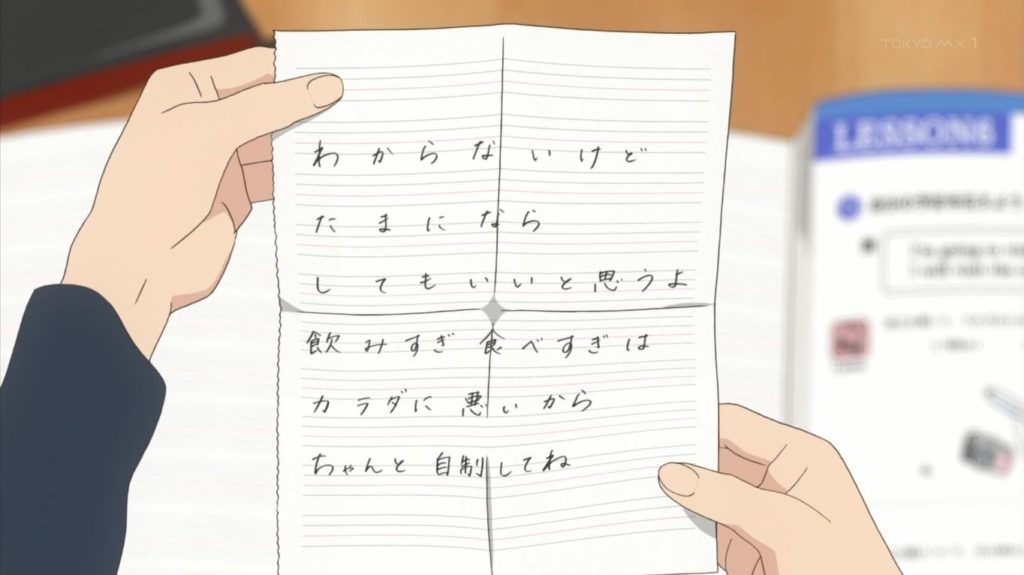 TOKYO MX 1
LESSON6
わからないけど
たまになら
してもいいと思うよ
飲みすぎ食べすぎは
カラダに悪いから
ちゃんと自制してね